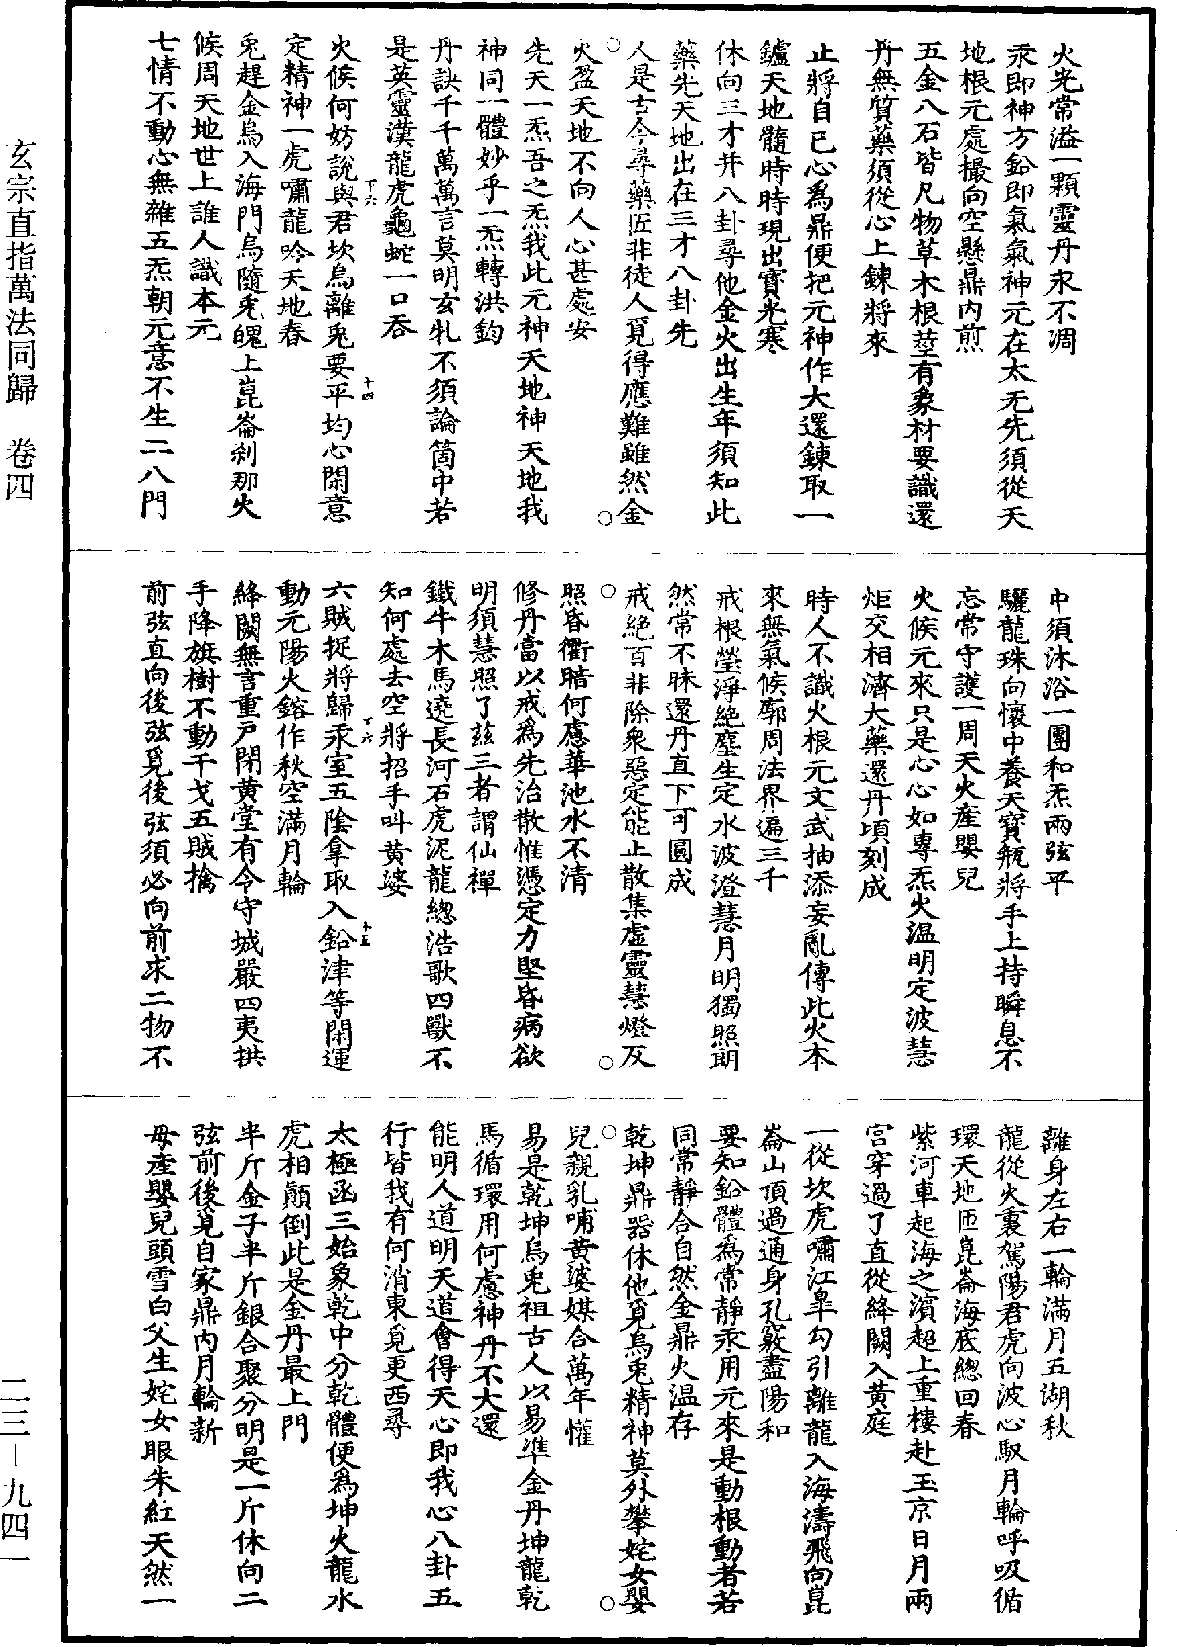 火光常溢一顆靈丹永不凋
汞即神方鉛即氣氣神元在太无先須從天
地根元處撮向空懸鼎内煎
五金八石皆凡物草木根莖有象材要識還
丹無質藥須從心上鍊將來
止將自已心為鼎便把元神作大還鍊取一
鑪天地髓時時現出寶光寒
休向三才并八卦尋他金火出生年須知此
藥先天地出在三才八卦先
人是古今尋藥匠非徒人覓得應難雖然金
火盈天地不向人心甚處安
先天一炁吾之炁我此元神天地神天地我
神同一體妙乎一炁轉洪鈞
丹訣千千萬萬言莫明玄牝不須論箇中若
是英靈漢龍虎龜蛇一口吞
火候何妨說與君坎烏離兎要平均心閑意
定精神一虎嘯龍吟天地春
兎趕金烏入海門烏隨兎魄上崑崙刹那火
候周天地世上誰人識本元
七情不動心無雜五炁朝元意不生二八門
中須沐浴一團和炁兩弦平
驪龍珠向懷中養天寶瓶將手上持瞬息不
忘常守護一周天火產嬰兒
火候元來只是心心如專炁火温明定波慧
炬交相濟大藥還丹頃刻成
時人不識火根元文武抽添妄亂傳此火本
來無氣候廓周法界遍三千
戒根瑩淨絶塵生定水波澄慧月明獨照期
然常不昧還丹直下可圓成
戒絶百非除衆惡定能止散集虛靈慧燈反
照昏衢暗何慮華池水不清
修丹當以戒為先治散惟憑定力堅昏病欲
明須慧照了兹三者謂仙禪
鐵牛木馬遶長河石虎泥龍總浩歌四獸不
知何處去空將招手叫黄婆
六賊捉將歸汞室五陰拿取入鉛津等閑運
動元陽火鎔作秋空滿月輪
絳闕無言重戸閉黄堂有令守城嚴四夷拱
手降旗樹不動干戈五賊擒
前弦直向後弦覓後弦須必向前求二物不
離身左右一輪滿月五湖秋
龍從火裏駕陽君虎向波心馭月輪呼吸循
環天地匝崑崙海底總回春
紫河車起海之濱超上重樓赴玉京日月兩
宫穿過了直從絳闕入黄庭
一從坎虎嘯江臯勾引離龍入海濤飛向崑
崙山頂過通身孔竅盡陽和
要知鉛體為常靜汞用元來是動根動者若
同常靜合自然金鼎火温存
乾坤鼎器休他覓烏兎精神莫外攀姹女嬰
兒親乳哺黄婆媒合萬年懽
易是乾坤烏兎祖古人以易準金丹坤龍乾
馬循環用何慮神丹不大還
能明人道明天道會得天心即我心八卦五
行皆我有何消東覓更西尋
太極函三始象乾中分乾體便為坤火龍水
虎相顛倒此是金丹最上門
半斤金子半斤銀合聚分明是一斤休向二
弦前後覓自家鼎内月輪新
母產嬰兒頭雪白父生姹女眼朱紅天然一
玄宗直指萬法同歸　卷四
二三—九四一
丁六
十四
丁六
十五